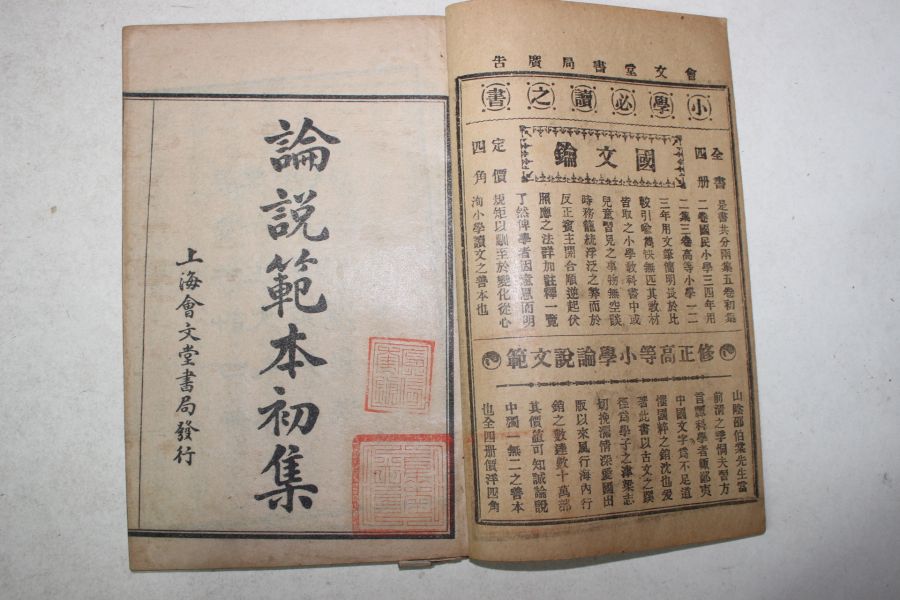 會文堂書局廣告
小學必讀之書
全書四册
國文鑰
定價四角
是書共分兩集五卷初集
二卷國民小學三四年用
二集三卷高等小學一二
三年用文筆簡明長於比
較引喩雋快無匹其敎材
皆取之小學敎科書中或
兒童習見之事物無空談
時務籠統浮泛之弊而於
反正賓主開合順逆起伏
照應之法群加註釋一覽
了然俾學者因意思而明
規矩以馴至於變化從心
洵小學讀文之善本也
修正高等小學論說文範
山陰邵伯棠先生當
前淸之季恫夫習方
言譚科學者鄙夷
中國文字爲不足道
懼國粹之銷沈也爰
著此書以古文之蹊
徑爲學子之津梁志
切挽瀾情深愛國出
版以來風行海內行
銷之數達數十萬部
其價値可知誠論說
中獨一無二之善本
也全四册價洋四角
論說範本初集
上海會文堂書局發行